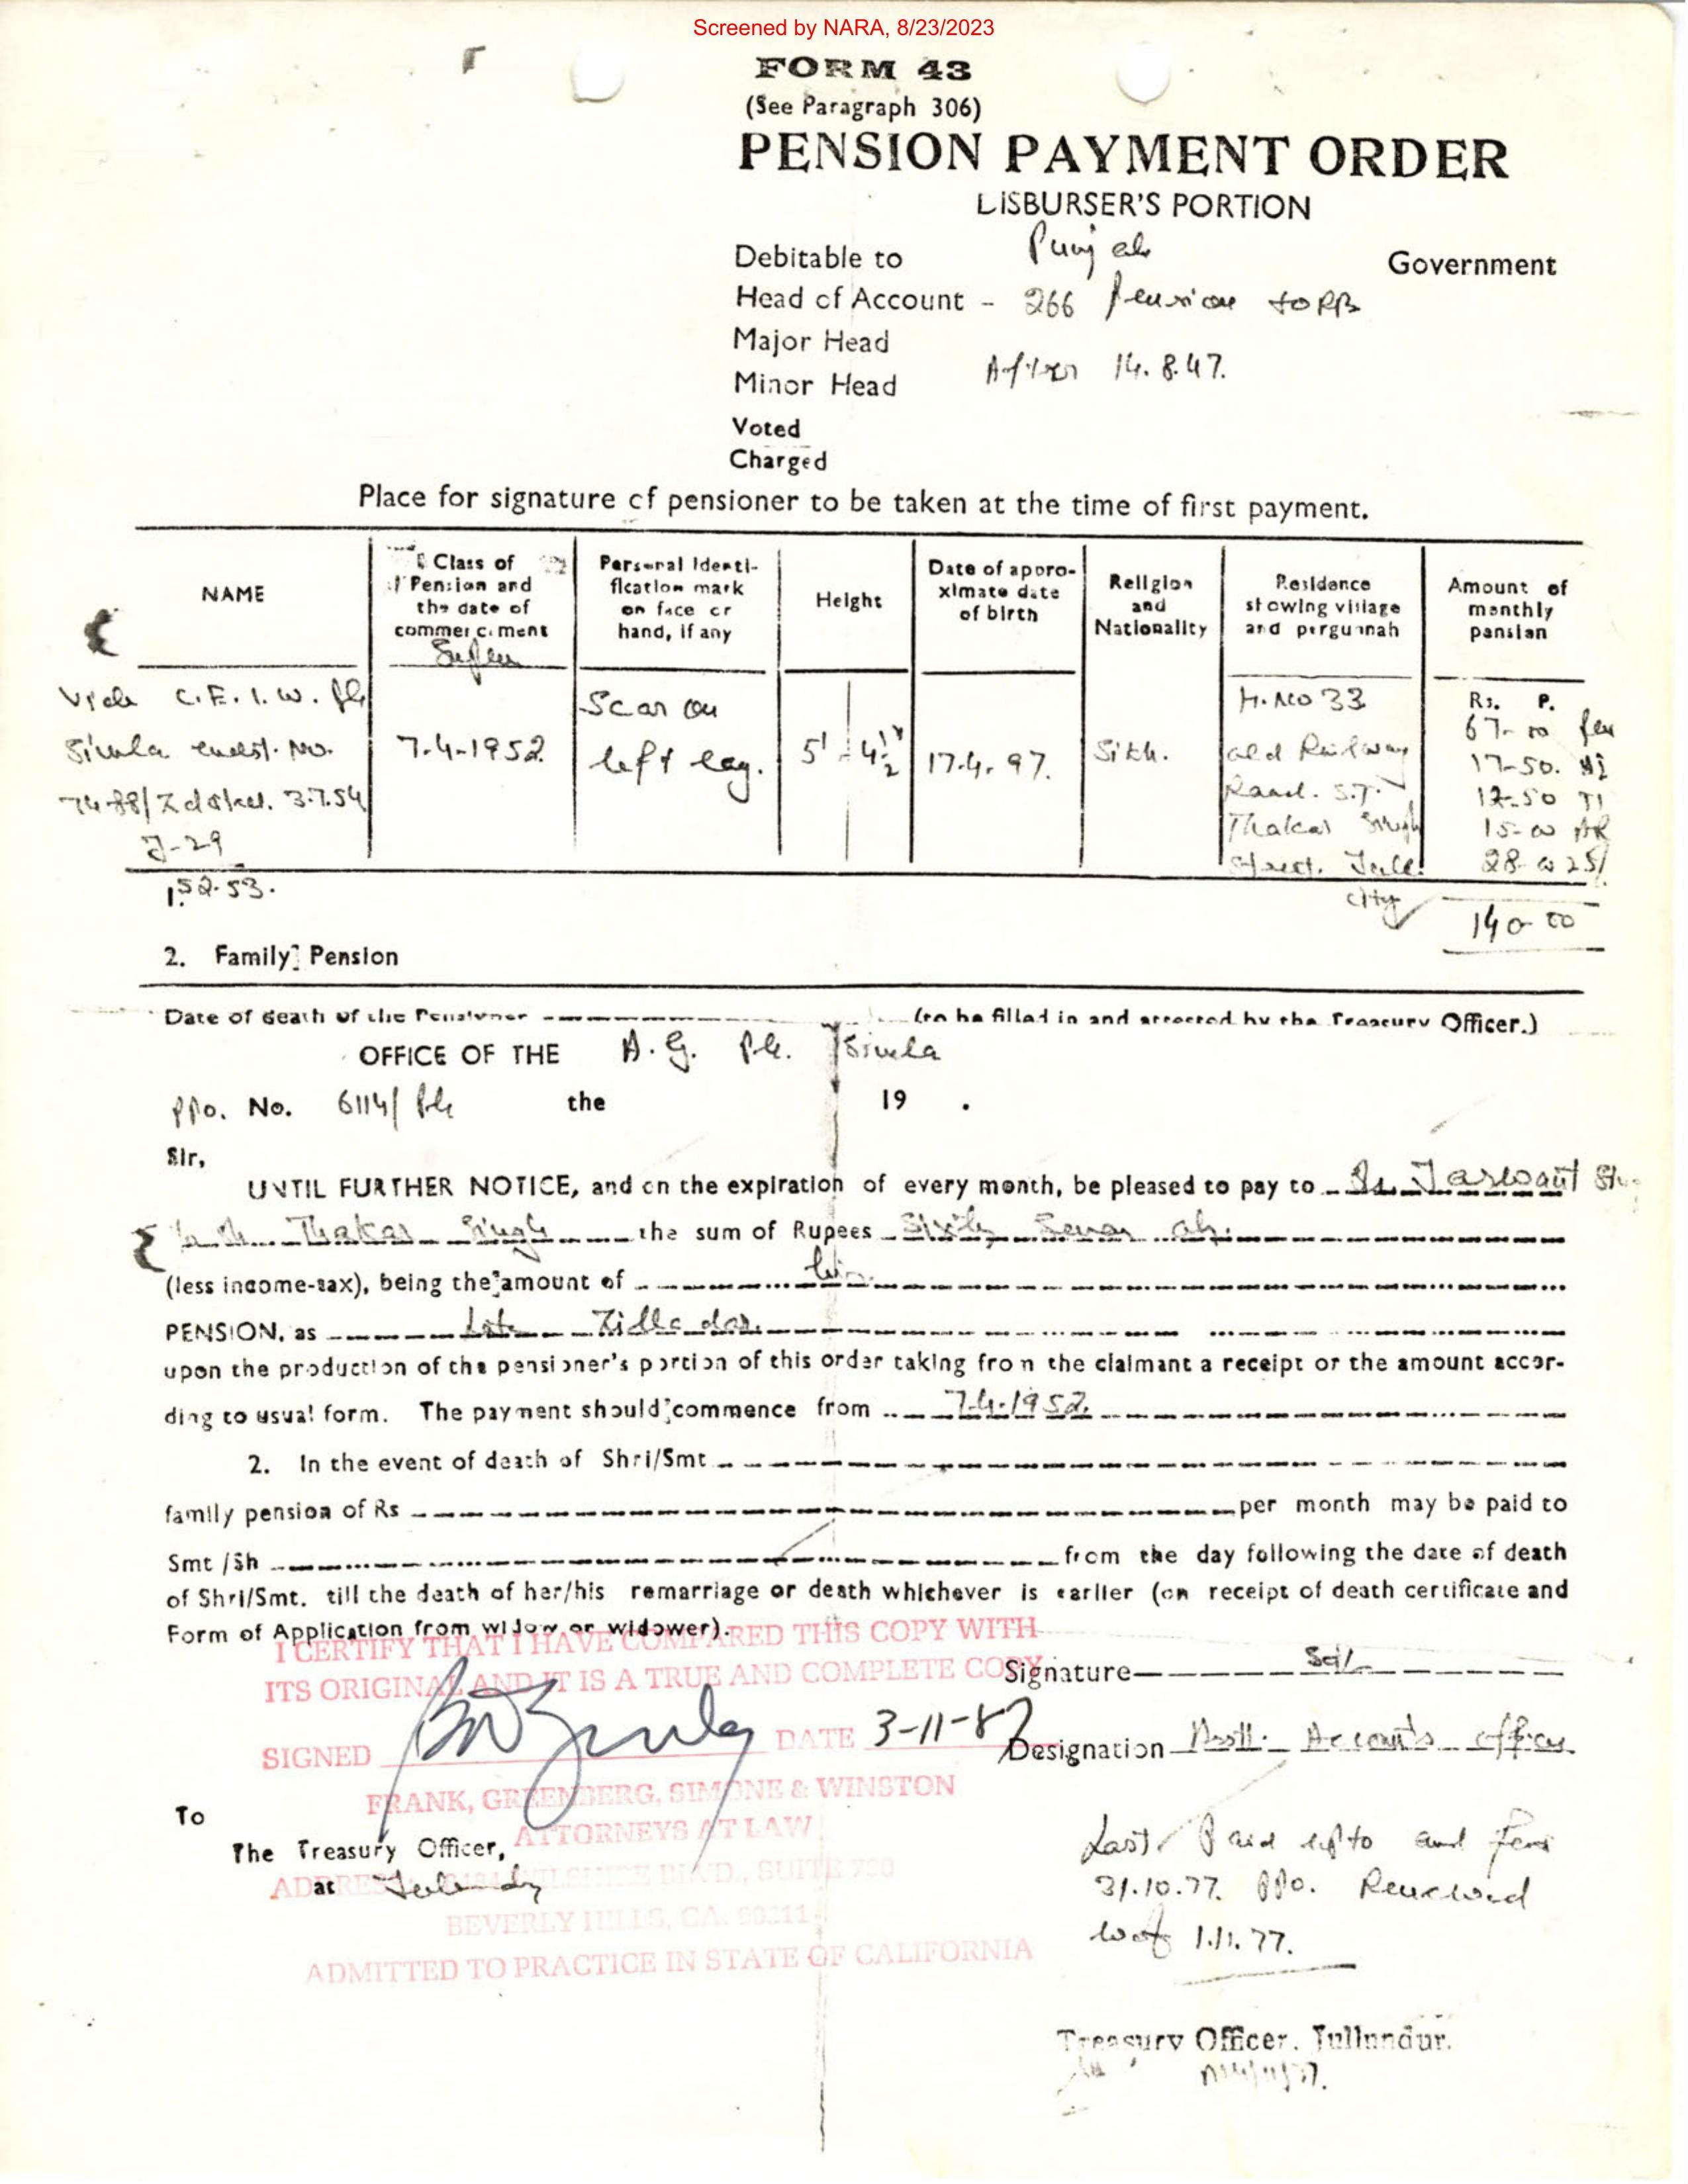 Screened by NARA, 8/23/2023
FORM 43
(See Paragraph 306)
PENSION PAYMENT ORDER
LISBURSER'S PORTION
Debitable to Punjab Government
Head of Account - 266 Pension to RPB
Major Head
Minor Head After 14.8.47.
Voted
Charged
Place for signature of pensioner to be taken at the time of first payment.
NAME
Class of Pension and the date of commercement
Personal Identification mark on face or hand, if any
Height
Date of approximate date of birth
Religion and Nationality
Residence showing village and pergunnah
Amount of monthly pension
C.E.I.W.
Simla endst. No.
3.7.54
J-29
1.52.53.
7-4-1952
Scar on
left leg.
5' - 4 1/2"
17.4.97.
Sikh.
H.No 33
old Railway
Road. S.T.
Thakar Singh
Street. Jull.
City
Rs. P.
67-00
17-50.
12-50
15-00 AR
28-00 25/
140-00
2. Family Pension
Date of death of the Pensioner (to be filled in and attested by the Treasury Officer.)
OFFICE OF THE A.G. Pb. Simla
PPo. No. 6114/Pb the 19 .
Sir,
UNTIL FURTHER NOTICE, and on the expiration of every month, be pleased to pay to S. Jaswant
Thakar Singh the sum of Rupees Sixty Seven
(less income-tax), being the amount of his
PENSION, as Late Zilladar.
upon the production of the pensioner's portion of this order taking from the claimant a receipt or the amount accor-
ding to usual form. The payment should commence from 7.4.1952.
2. In the event of death of Shri/Smt
family pension of Rs per month may be paid to
Smt /Sh from the day following the date of death
of Shri/Smt. till the death of her/his remarriage or death whichever is earlier (on receipt of death certificate and
Form of Application from widow or widower).
I CERTIFY THAT I HAVE COMPARED THIS COPY WITH
ITS ORIGINAL AND IT IS A TRUE AND COMPLETE COPY
Signature Sd/-
SIGNED DATE 3-11-87
Designation Asstt. Accounts officer
FRANK, GREENBERG, SIMONE & WINSTON
ATTORNEYS AT LAW
To
The Treasury Officer,
at
ADDRESS WILSHIRE BLVD., SUITE
BEVERLY HILLS, CA. 90211
ADMITTED TO PRACTICE IN STATE OF CALIFORNIA
Last Paid upto and for
31.10.77. PPo. Renewed
wef 1.11.77.
Treasury Officer, Jullundur.